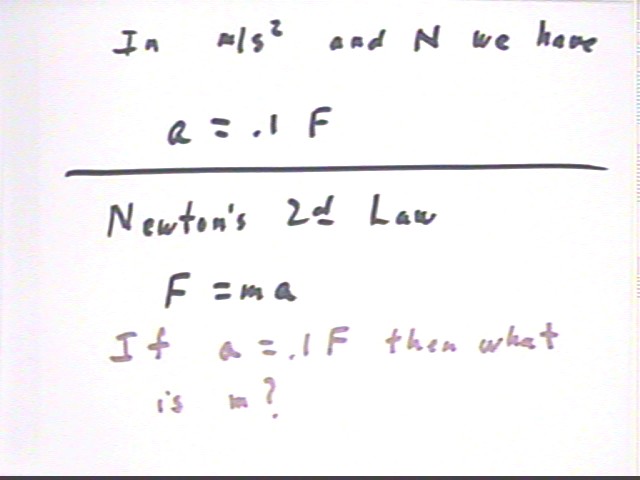 In m/s² and N we have
a = .1 F
Newton's 2d Law
F = ma
If a = .1 F then what
is m?